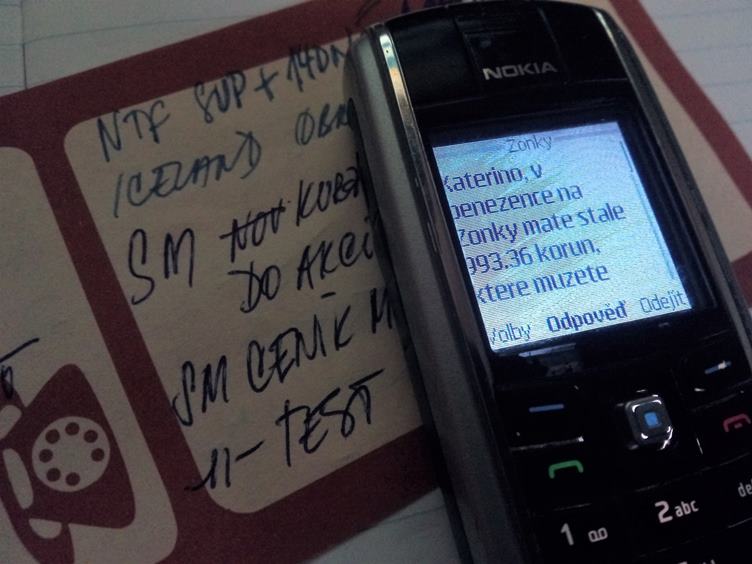 NTF SUP + 14DN
ICELAND
SM NOV
DO AKCÍ
SM CENÍK
-11- TEST
NOKIA
Zonky
Katerino, v
penezence na
Zonky mate stale
993.36 korun,
ktere muzete
Volby Odpověď Odejít
1
2 abc